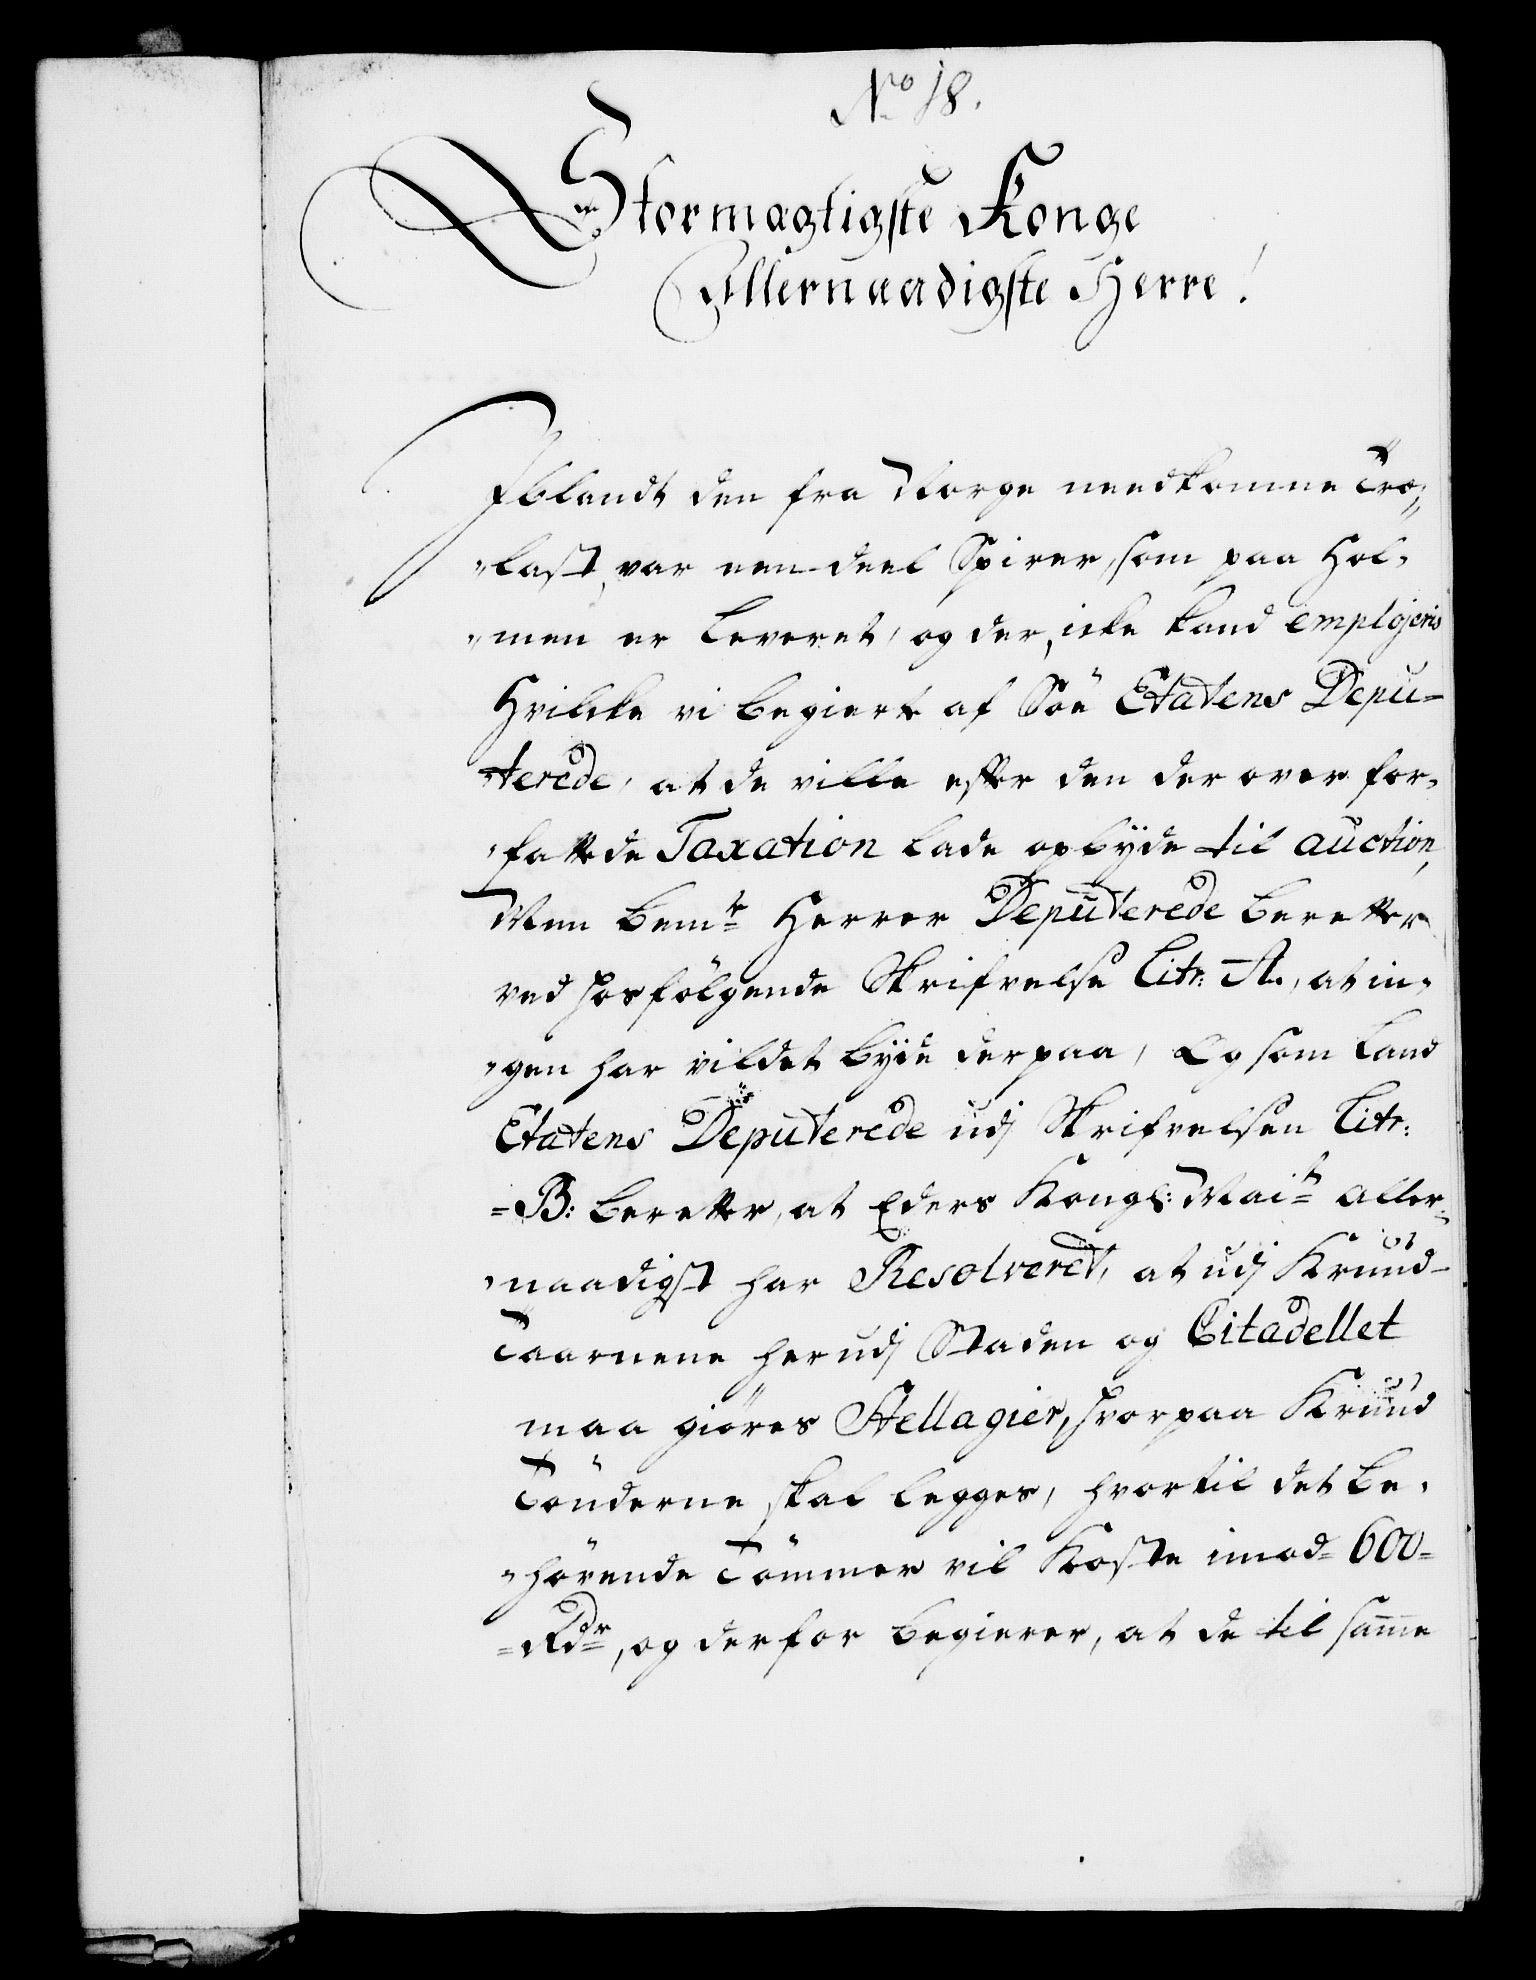 No 18.
Stormægtigste Konge
Allernaadigste Herre!
Iblandt den fra Norge needkomne Tro,,
"last, var een deel Spirer, som paa Hol,
"men er leveret, og der, icke kand emplojeris
Hvilcke vi begierte af Söe Etatens Depu-
"terede, at de ville efter den der over for,
"fattede Taxation lade opbyde til auction,
Men bemte Herrer Deputerede beretter
ved hosfölgende Skrifvelse Litr: A., at in,
"gen har vildet byde derpaa, Og som Land
Etatens Deputerede udj Skrifvelsen Litr:
=B: beretter, at Eders Kongl: Mait aller,,
"naadigst har Resolveret, at udj Krud-
Taarnene her udj Staden og Citadellet
maa giöres Stellagier, hvorpaa Krud
Tönderne skal legges, hvortil det be,
"hörende Tömmer vil Koste imod= 600=
=Rdr, og derfor begierer, at de til samme